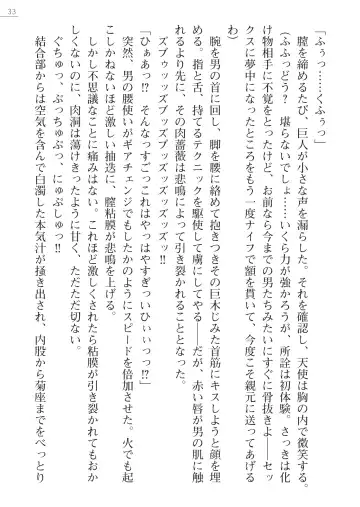 33
「ふぅっ……くふぅっ」
　膣を締めるたび、巨人が小さな声を漏らした。それを確認し、天使は胸の内で微笑する。
（ふふっどう？　堪らないでしょ……いくら力が強かろうが、所詮は初体験。さっきは化
け物相手に不覚をとったけど、お前なら今までの男たちみたいにすぐに骨抜きよ――セッ
クスに夢中になったところをもう一度ナイフで額を貫いて、今度こそ親元に送ってあげる
わ）
　腕を男の首に回し、脚を腰に絡めて抱きつきその巨木じみた首筋にキスしようと顔を埋
める。指と舌、持てるテクニックを駆使して虜にしてやる――だが、赤い唇が男の肌に触
れるより先に、その肉薔薇は悲鳴によって引き裂かれることとなった。
　ズブゥッッズブッズブッズッズッズッズッ‼
「ひぁあっ⁉　そんなっすごっこれはやっはやすぎっいひぃぃっっ⁉」
　突然、男の腰使いがギアチェンジでもしたかのようにスピードを倍加させた。火でも起
こしかねないほど激しい抽送に、膣粘膜が悲鳴を上げる。
　しかし不思議なことに痛みはない。これほど激しくされたら粘膜が引き裂かれてもおか
しくないのに、肉洞は蕩けきったように甘く、ただただ切ない。
　ぐちゅっ、ぶっちゅぶっ、にゅぷしゅっ‼
　結合部からは空気を含んで白濁した本気汁が掻き出され、内股から菊座までをべっとり